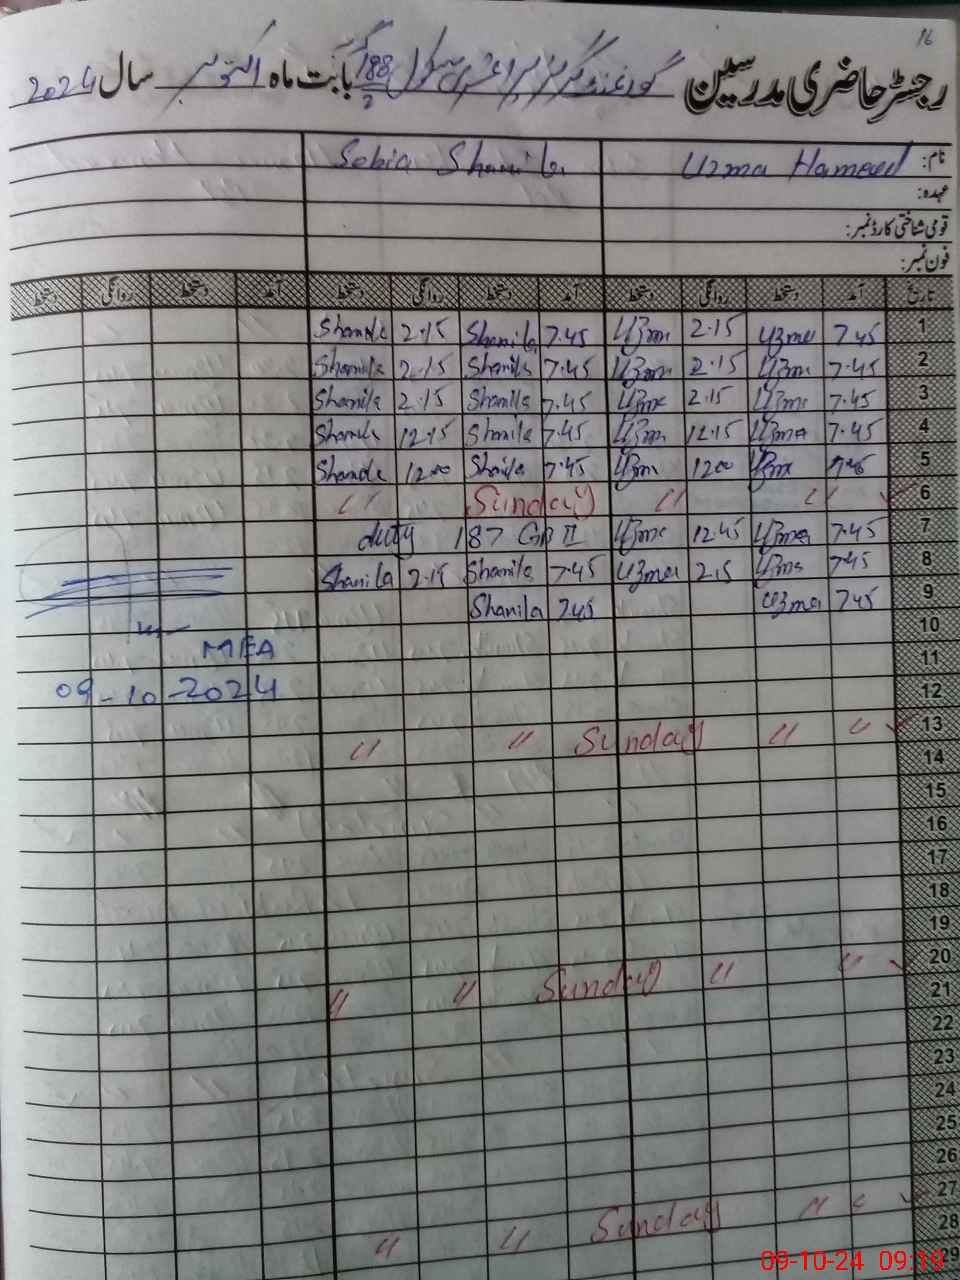 16
رجسٹر حاضری مدرسین گورنمنٹ گرلز پرائمری سکول 188 گ ب 2 بابت ماہ اکتوبر سال 2024
نام: Uzma Hameed Sobia Shamila
عہدہ:
قومی شناختی کارڈ نمبر:
فون نمبر:
تاریخ آمد دستخط روانگی دستخط آمد دستخط روانگی دستخط آمد دستخط روانگی دستخط
1 7.45 Uzma 2.15 Uzma 7.45 Shamila 2.15 Shamila
2 7.45 Uzma 2.15 Uzma 7.45 Shamila 2.15 Shamila
3 7.45 Uzma 2.15 Uzma 7.45 Shamila 2.15 Shamila
4 7.45 Uzma 12.15 Uzma 7.45 Shamila 12.15 Shamila
5 7.45 Uzma 12.00 Uzma 7.45 Shamila 12.00 Shamila
6 " " Sunday "
7 7.45 Uzma 12.45 Uzma duty 187 GB II
8 7.45 Uzma 2.15 Uzma 7.45 Shamila 2.15 Shamila
9 7.45 Uzma 7.45 Shamila
10
11 MEA
12 09-10-2024
13 " " Sunday " "
14
15
16
17
18
19
20 " " Sunday " "
21
22
23
24
25
26
27 " " Sunday " "
28
29
09-10-24 09:19